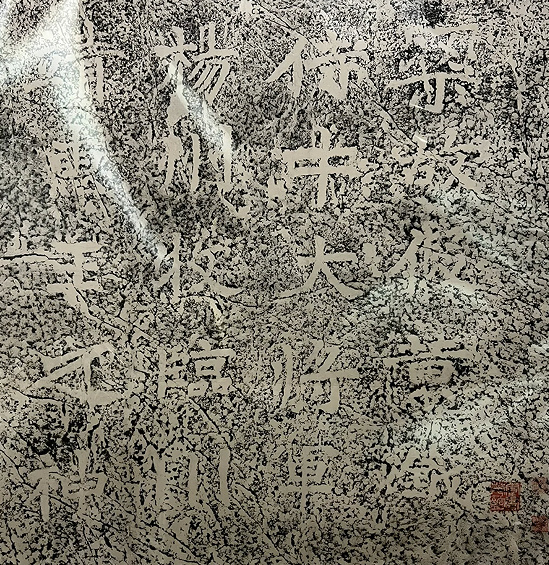 梁故假黄鉞
侍中大將軍
楊州牧臨川
靖惠王之神